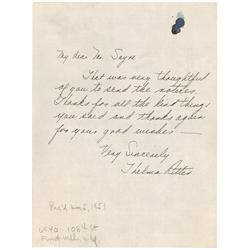 My dear Mr. Sayre
That was very thoughtful
of you to send the notices.
Thanks for all the kind things
you said and thanks again
for your good wishes —
Very Sincerely
Thelma Ritter
Rec'd 1951
108th St
Forest Hills, N.Y.